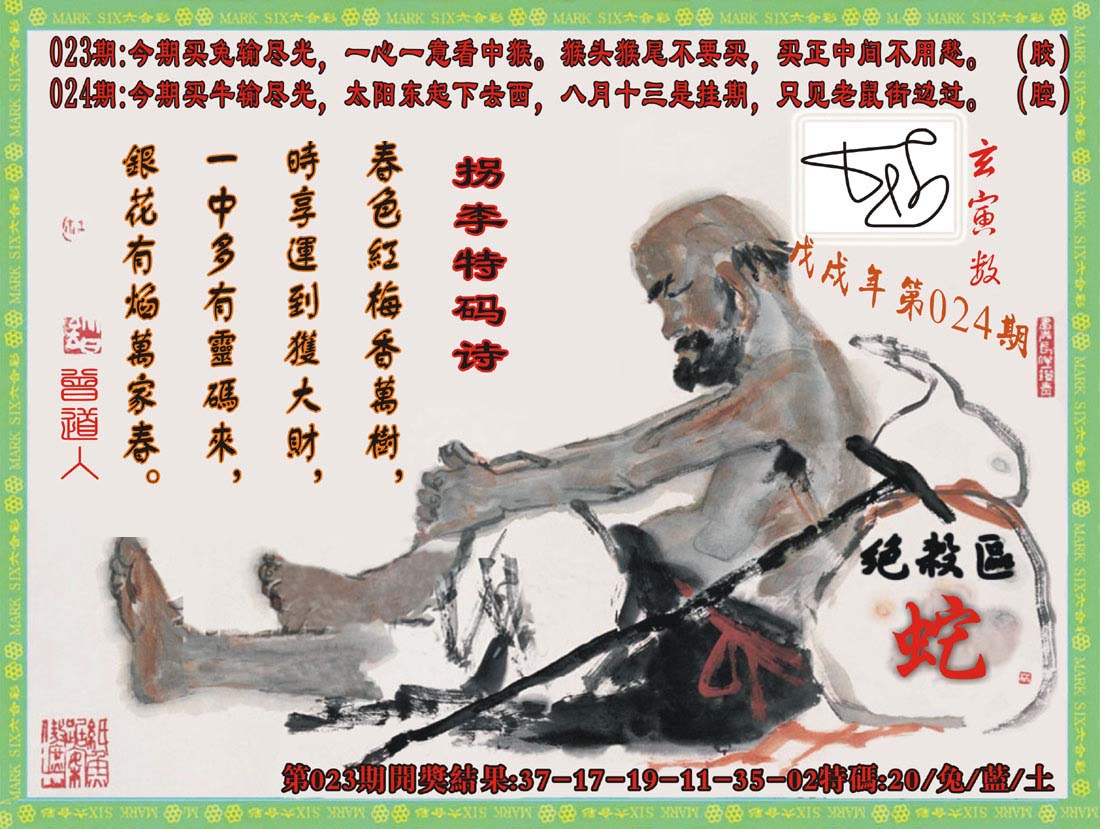 MARK SIX六合彩
023期:今期买兔输尽光，一心一意看中猴。猴头猴尾不要买，买正中间不用愁。（胶）
024期:今期买牛输尽光，太阳东起下去西，八月十三是挂期，只见老鼠街边过。（腔）
玄寅数
戊戌年第024期
拐李特码诗
春色紅梅香萬樹，
時享運到獲大財，
一中多有靈碼來，
銀花有焰萬家春。
曾道人
绝殺區
蛇
第023期開獎結果:37-17-19-11-35-02特碼:20/兔/藍/土